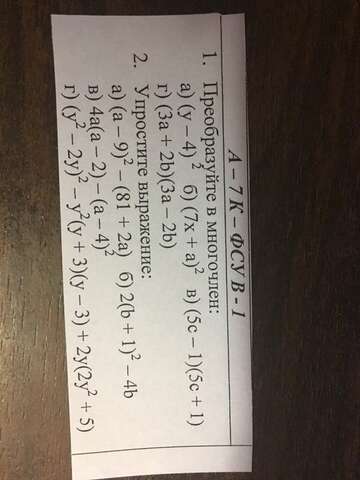 А – 7 К – ФСУ В - 1
1. Преобразуйте в многочлен:
а) (у – 4)² б) (7х + а)² в) (5с – 1)(5с + 1)
г) (3а + 2b)(3а – 2b)
2. Упростите выражение:
а) (а – 9)² – (81 + 2а) б) 2(b + 1)² – 4b
в) 4а(а – 2) – (а – 4)²
г) (у² – 2у)² – у²(у + 3)(у – 3) + 2у(2у² + 5)